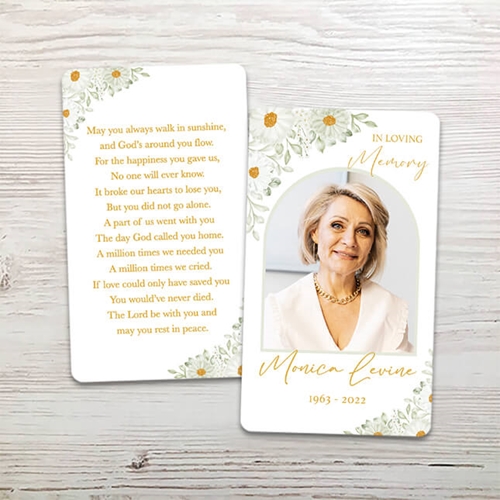 May you always walk in sunshine,
and God's around you flow.
For the happiness you gave us,
No one will ever know.
It broke our hearts to lose you,
But you did not go alone.
A part of us went with you
The day God called you home.
A million times we needed you
A million times we cried.
If love could only have saved you
You would've never died.
The Lord be with you and
may you rest in peace.
IN LOVING
Memory
Monica Levine
1963 - 2022